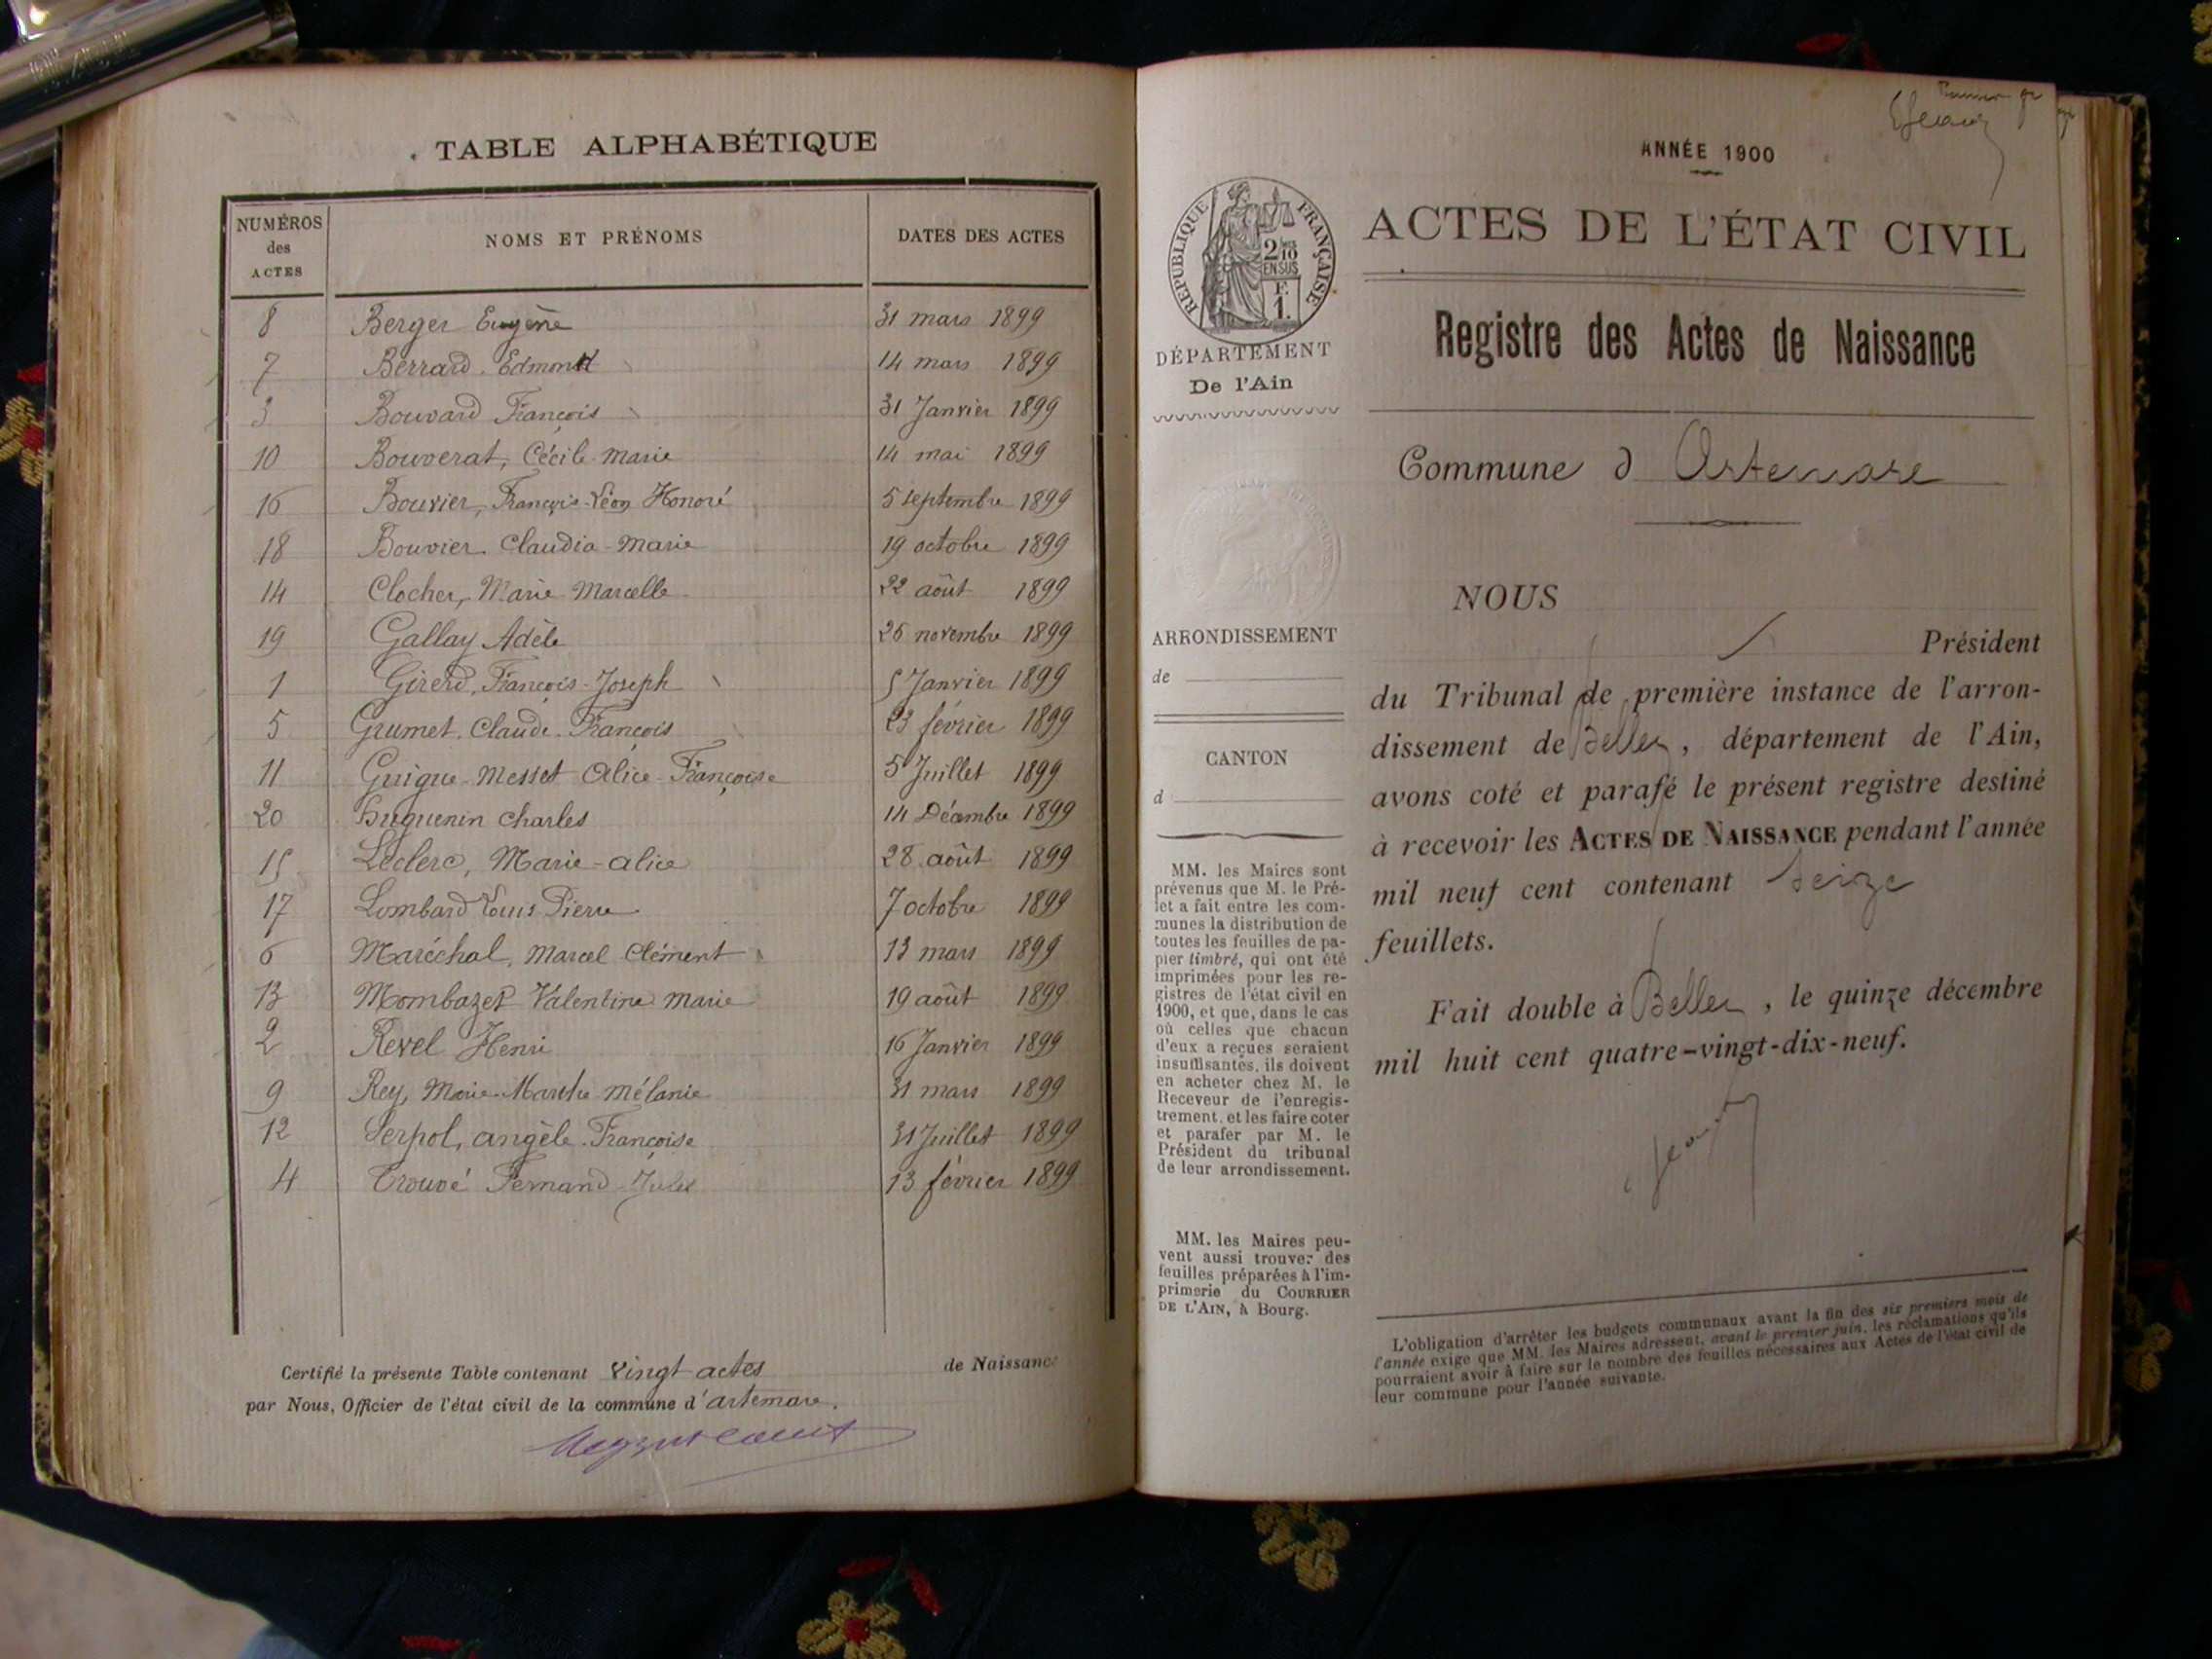 TABLE ALPHABÉTIQUE
NUMÉROS
des
ACTES
NOMS ET PRÉNOMS
DATES DES ACTES
8 Berger Eugène 31 mars 1899
7 Berrard Edmond 14 mars 1899
3 Bouvard François 31 Janvier 1899
10 Bouverat, Cécile Marie 14 mai 1899
16 Bouvier, François-Léon Honoré 5 septembre 1899
18 Bouvier Claudia-Marie 19 octobre 1899
14 Clocher, Marie Marcelle 22 août 1899
19 Gallay Adèle 26 novembre 1899
1 Girerd, François-Joseph 5 Janvier 1899
5 Grumet Claude François 23 février 1899
11 Guigue-Messet Alice Françoise 5 Juillet 1899
20 Huguenin Charles 14 Décembre 1899
15 Leclerc, Marie-Alice 28 août 1899
17 Lombard Louis Pierre 7 octobre 1899
6 Maréchal, Marcel Clément 13 mars 1899
13 Mombazet Valentine Marie 19 août 1899
2 Revel Henri 16 Janvier 1899
9 Rey, Marie-Marthe Mélanie 31 mars 1899
12 Serpol, Angèle Françoise 31 Juillet 1899
4 Trouvé Fernand Jules 13 février 1899
Certifié la présente Table contenant vingt actes de Naissance
par Nous, Officier de l'état civil de la commune d'artemare.
ANNÉE 1900
RÉPUBLIQUE FRANÇAISE
2/10
EN SUS
F.
1.
DÉPARTEMENT
De l'Ain
ARRONDISSEMENT
de
CANTON
d
MM. les Maires sont
prévenus que M. le Pré-
fet a fait entre les com-
munes la distribution de
toutes les feuilles de pa-
pier timbré, qui ont été
imprimées pour les re-
gistres de l'état civil en
1900, et que, dans le cas
où celles que chacun
d'eux a reçues seraient
insuffisantes, ils doivent
en acheter chez M. le
Receveur de l'enregis-
trement, et les faire coter
et parafer par M. le
Président du tribunal
de leur arrondissement.
MM. les Maires peu-
vent aussi trouver des
feuilles préparées à l'im-
primerie du COURRIER
DE L'AIN, à Bourg.
ACTES DE L'ÉTAT CIVIL
Registre des Actes de Naissance
Commune d Artemare
NOUS
Président
du Tribunal de première instance de l'arron-
dissement de Belley, département de l'Ain,
avons coté et parafé le présent registre destiné
à recevoir les ACTES DE NAISSANCE pendant l'année
mil neuf cent contenant seize
feuillets.
Fait double à Belley, le quinze décembre
mil huit cent quatre-vingt-dix-neuf.
L'obligation d'arrêter les budgets communaux avant la fin des six premiers mois de
l'année exige que MM. les Maires adressent, avant le premier juin, les réclamations qu'ils
pourraient avoir à faire sur le nombre des feuilles nécessaires aux Actes de l'état civil de
leur commune pour l'année suivante.